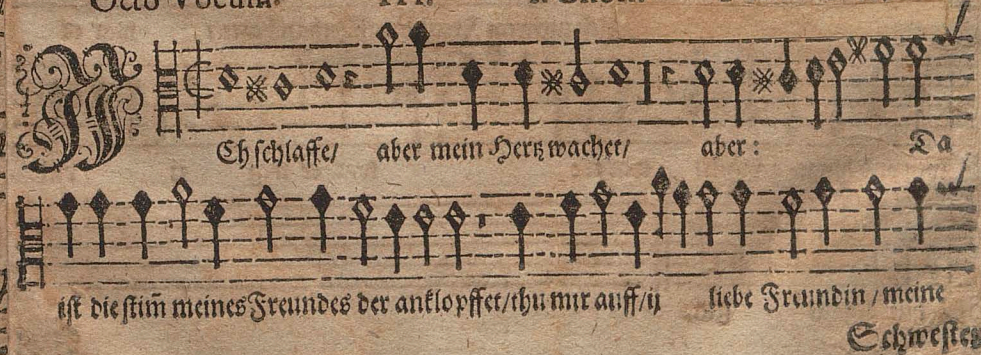 Octo Vocum. III. I. Chori.
ICh schlaffe/ aber mein Hertz wachet/ aber: Da
ist die stim̃ meines Freundes der anklopffet/thu mir auff/ij liebe Freundin/meine
Schwester